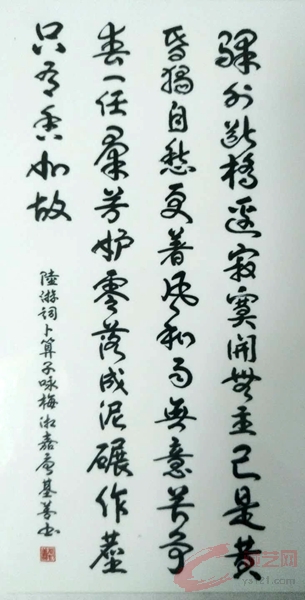 驛外斷橋邊寂寞開無主已是黄
昏獨自愁更著风和雨無意苦争
春一任羣芳妒零落成泥碾作塵
只有香如故
陸游詞卜算子咏梅 嘉 基 书
艺网